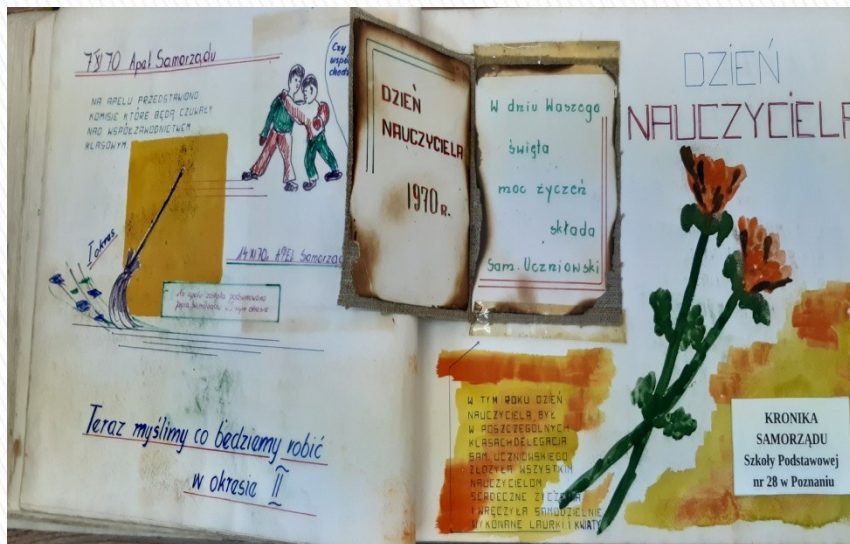 7 XI 70 Apel Samorządu
NA APELU PRZEDSTAWIONO
KOMISJE KTÓRE BĘDĄ CZUWAŁY
NAD WSPÓŁZAWODNICTWEM
KLASOWYM.
Czy
I okres
14 XI 70. APEL Samorząd
Na apelu została podsumowana
praca Samorządu w okresie
Teraz myślimy co będziemy robić
w okresie II
DZIEŃ
NAUCZYCIELA
1970 R.
W dniu Waszego
święta
moc życzeń
składa
Sam. Uczniowski
DZIEŃ
NAUCZYCIELA
W TYM ROKU DZIEŃ
NAUCZYCIELA BYŁ
W POSZCZEGÓLNYCH
KLASACH DELEGACJA
SAM. UCZNIOWSKIEGO
ZŁOŻYŁA WSZYSTKIM
NAUCZYCIELOM
SERDECZNE ŻYCZENIA
I WRĘCZYŁA SAMODZIELNIE
WYKONANE LAURKI I KWIATY
KRONIKA
SAMORZĄDU
Szkoły Podstawowej
nr 28 w Poznaniu